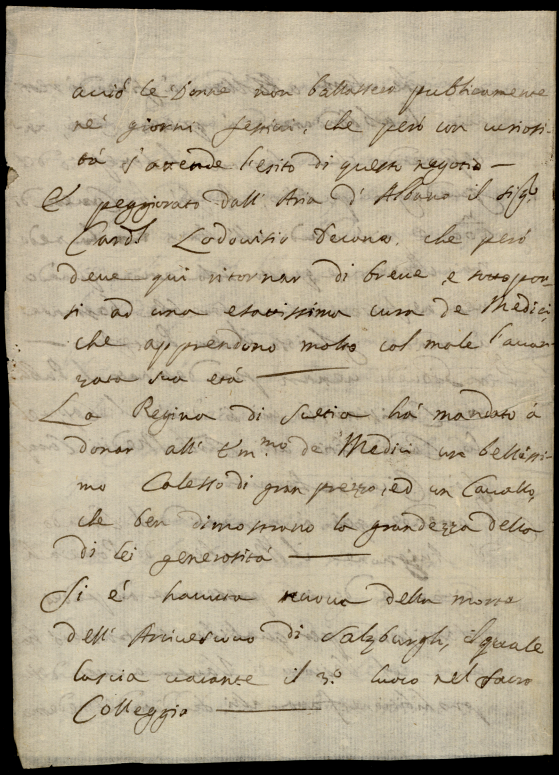 acciò le Donne non ballassero publicamente
ne' giorni festivi, che però con curiosi-
tà s'attende l'esito di questo negotio —
È peggiorato dall' Aria d' Albano il Sigr
Cardl Lodovisio Decano, che però
deve qui ritornar di breve, e sottopor-
si ad una esattissima cura de Medici,
che apprendono molto col male l'avan-
zata sua età —
La Regina di Svetia hà mandato à
donar all' Emmo de' Medici un bellissi-
mo Calesso di gran prezzo, ed un Cavallo,
che ben dimostrano la grandezza della
di lei generosità —
Si è havuta nuova della morte
dell' Arcivescovo di Salzburgh, il quale
lascia vacante il 3º luoco nel Sacro
Colleggio —